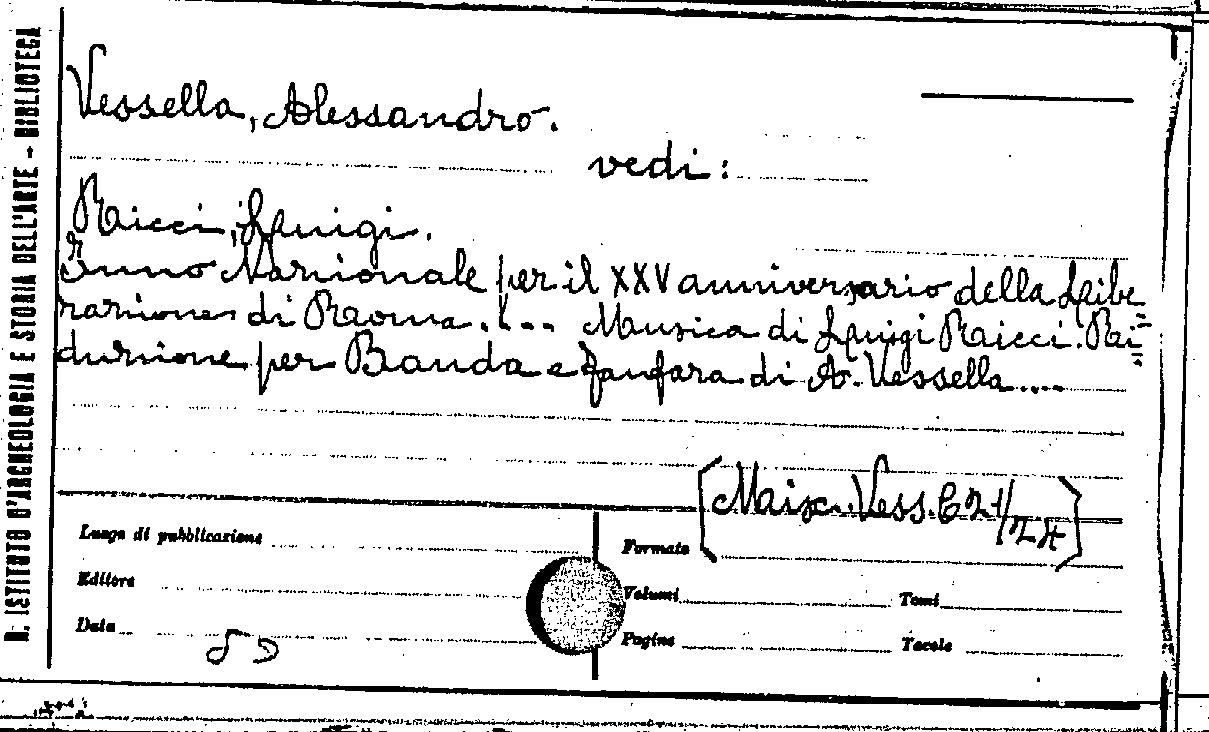 R. ISTITUTO D'ARCHEOLOGIA E STORIA DELL'ARTE - BIBLIOTECA
Vessella, Alessandro.
vedi:
Ricci, Luigi.
Inno Nazionale per il XXV anniversario della Libe
razione di Roma.... Musica di Luigi Ricci. Ri=
duzione per Banda e fanfara di A. Vessella....
[Misc. Vess. C 21/24]
Luogo di pubblicazione
Formato
Editore
Volumi
Tomi
Data
Pagine
Tavole